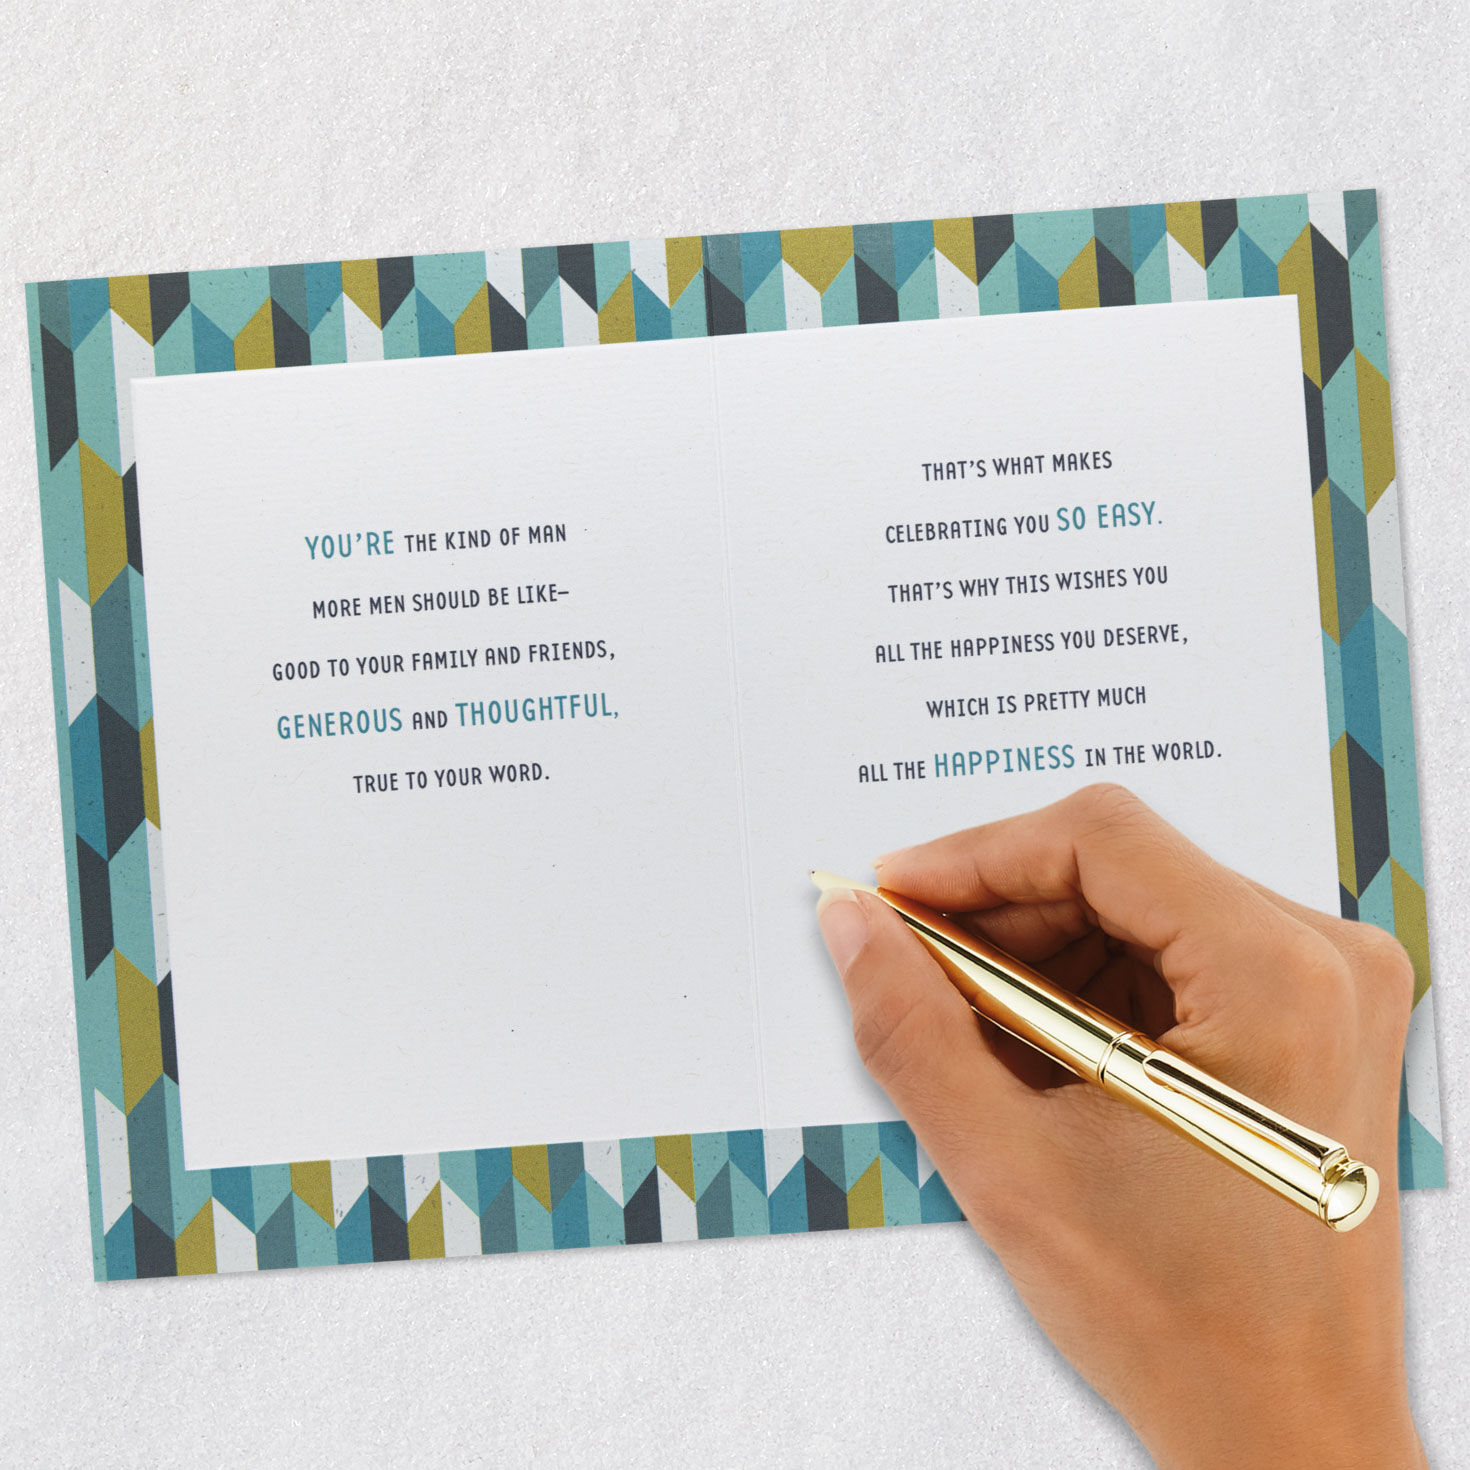 YOU'RE THE KIND OF MAN
MORE MEN SHOULD BE LIKE—
GOOD TO YOUR FAMILY AND FRIENDS,
GENEROUS AND THOUGHTFUL,
TRUE TO YOUR WORD.
THAT'S WHAT MAKES
CELEBRATING YOU SO EASY.
THAT'S WHY THIS WISHES YOU
ALL THE HAPPINESS YOU DESERVE,
WHICH IS PRETTY MUCH
ALL THE HAPPINESS IN THE WORLD.